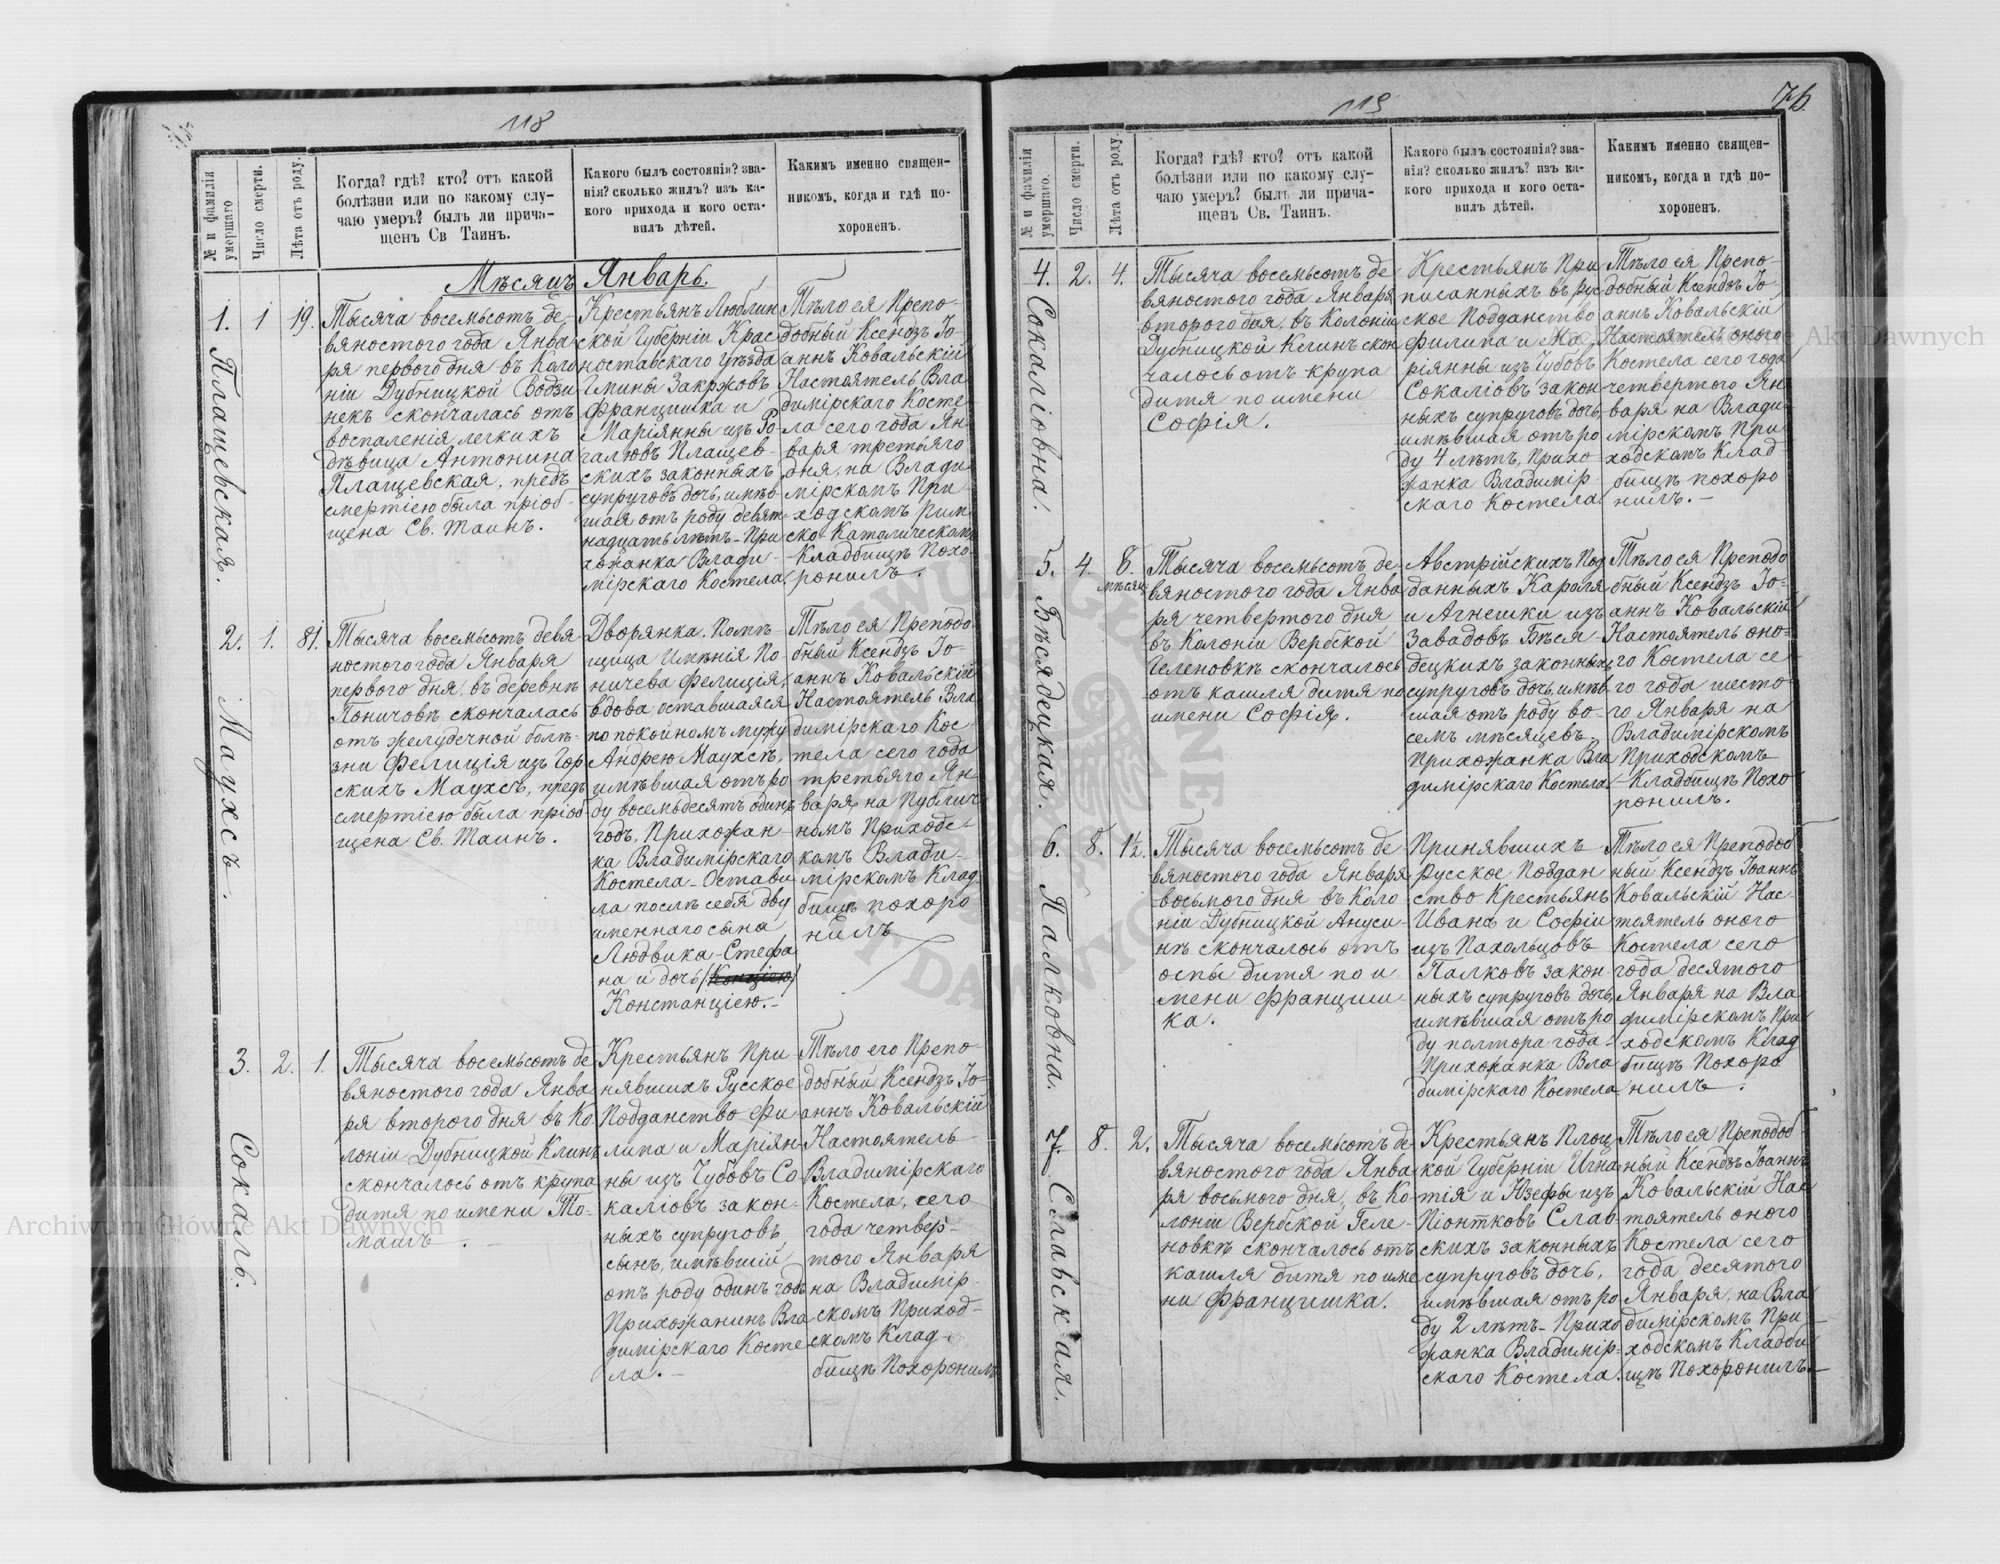 118
№ и фамилія умершаго.
Число смерти.
Лѣта отъ роду.
Когда? гдѣ? кто? отъ какой
болѣзни или по какому слу-
чаю умеръ? былъ ли прича-
щенъ Св Таинъ.
Какого былъ состоянія? зва-
нія? сколько жилъ? изъ ка-
кого прихода и кого оста-
вилъ дѣтей.
Какимъ именно священ-
никомъ, когда и гдѣ по-
хороненъ.
Мѣсяцъ Январь.
1. Плащевская.
1
19.
Тысяча восемьсотъ де-
вяностого года Янва-
ря первого дня въ Коло
ніи Дубницкой Водзи
некъ скончалась отъ
воспаленія легкихъ
дѣвица Антонина
Плащевская, предъ
смертію была пріоб-
щена Св. Таинъ.
Крестьянъ Люблин
ской Губерніи Крас
ноставскаго Уѣзда
Гмины Закржовъ
Францишка и
Маріянны изъ Ро-
галювъ Плащев-
скихъ законныхъ
супруговъ дочь, имѣв-
шая отъ роду девят-
надцать лѣтъ - При
хожанка Влади-
мірскаго Костела.
Тѣло ея Препо-
добный Ксендзъ Іо-
аннъ Ковальскій
Настоятель Вла
димірскаго Косте
ла сего года Ян
варя третьяго
дня, на Влади
мірскомъ При
ходскомъ Рим
ско-Католическомъ
Кладбищѣ Похо-
ронилъ.
2. Маухсъ.
1.
81.
Тысяча восемьсотъ девя
ностого года Января
первого дня, въ деревнѣ
Поничовѣ скончалась
отъ желудочной болѣ-
зни Фелиція изъ Гор
скихъ Маухсъ, предъ
смертію была пріоб
щена Св. Таинъ.
Дворянка. Помѣ-
щица Имѣнія По-
ничева Фелиція,
вдова оставшаяся
по покойномъ мужу
Андрею Маухсѣ,
имѣвшая отъ ро
ду восемьдесятъ одинъ
годъ, Прихожан-
ка Владимірскаго
Костела - Остави
ла послѣ себя дву
именнаго сына
Людвика-Стефа
на и дочь
Констанцію.-
Тѣло ея Преподо
бный Ксендзъ Іо-
аннъ Ковальскій
Настоятель Вла
димірскаго Кос-
тела сего года
третьяго Ян
варя на Публич
номъ Приходс-
комъ Влади-
мірскомъ Клад
бищѣ похоро
нилъ
3. Сокаль.
2.
1.
Тысяча восемьсотъ де
вяностого года Янва
ря второго дня въ Ко
лоніи Дубницкой Клинъ
скончалось отъ крупа
дитя по имени То-
машъ.
Крестьянъ При
нявшихъ Русское
Подданство Фи
липа и Маріян
ны изъ Чубовъ Со
каліовъ закон-
ныхъ супруговъ
сынъ, имѣвшій
отъ роду одинъ годъ
Прихожанинъ Вла
димірскаго Косте
ла.-
Тѣло его Препо-
добный Ксендзъ Іо-
аннъ Ковальскій
Настоятель
Владимірскаго
Костела, сего
года четвер-
того Января
на Владимір-
скомъ Приход-
скомъ Клад-
бищѣ Похоронилъ
119
76
№ и фамилія умершаго.
Число смерти.
Лѣта отъ роду.
Когда? гдѣ? кто? отъ какой
болѣзни или по какому слу-
чаю умеръ? былъ ли прича-
щенъ Св. Таинъ.
Какого былъ состоянія? зва-
нія? сколько жилъ? изъ ка-
кого прихода и кого оста-
вилъ дѣтей.
Какимъ именно священ-
никомъ, когда и гдѣ по-
хороненъ.
4. Сокаліовна.
2.
4.
Тысяча восемьсотъ де
вяностого года Января
второго дня, въ Колоніи
Дубницкой Клинъ скон
чалось отъ крупа
дитя по имени
Софія.
Крестьянъ При
писанныхъ въ рус
ское Подданство
Филипа и Ма
ріянны изъ Чубовъ
Сокаліовъ закон
ныхъ супруговъ дочь,
имѣвшая отъ ро
ду 4 лѣтъ, Прихо-
жанка Владимір-
скаго Костела.
Тѣло ея Препо-
добный Ксендзъ Іо-
аннъ Ковальскій
Настоятель оного
Костела сего года
четвертого Ян
варя на Влади
мірскомъ При
ходскомъ Клад
бищѣ похоро
нилъ.-
5. Бѣсядецкая.
4.
8.
мѣсяц.
Тысяча восемьсотъ де-
вяностого года Янва
ря четвертого дня
въ Колоніи Вербской
Геленовкѣ скончалось
отъ кашля дитя по
имени Софія.
Австрійскихъ Под
данныхъ Кароля
и Агнешки изъ
Завадовъ Бѣся-
децкихъ законныхъ
супруговъ дочь, имѣв
шая отъ роду во-
семь мѣсяцевъ-
Прихожанка Вла
димірскаго Костела
Тѣло ея Преподо
бный Ксендзъ Іо-
аннъ Ковальскій
Настоятель оно-
го Костела се-
го года шесто-
го Января на
Владимірскомъ
Приходскомъ
Кладбищѣ Похо
ронилъ.
6. Палковна.
8.
1½.
Тысяча восемьсотъ де
вяностого года Января
восьмого дня въ Коло
ніи Дубницкой Ануси-
нѣ скончалось отъ
оспы дитя по и
мени Францишка
ка.
Принявшихъ
Русское Поддан
ство Крестьянъ
Ивана и Софіи
изъ Пахольцовъ
Палковъ закон
ныхъ супруговъ дочь,
имѣвшая отъ ро
ду полтора года-
Прихожанка Вла
димірскаго Костела
Тѣло ея Преподоб
ный Ксендзъ Іоаннъ
Ковальскій Нас-
тоятель оного
Костела сего
года десятого
Января на Вла
димірскомъ При
ходскомъ Клад
бищѣ Похоро
нилъ.
7. Славская.
8.
2.
Тысяча восемьсотъ де-
вяностого года Янва
ря восьмого дня, въ Ко
лоніи Вербской Геле-
новкѣ скончалось отъ
кашля дитя по име
ни Францишка.
Крестьянъ Плоц
кой Губерніи Игна
тія и Юзефы изъ
Піонтковъ Слав
скихъ законныхъ
супруговъ дочь,
имѣвшая отъ ро
ду 2 лѣтъ - Прихо
жанка Владимір-
скаго Костела.
Тѣло ея Преподоб-
ный Ксендзъ Іоаннъ
Ковальскій Нас
тоятель оного
Костела сего
года десятого
Января, на Вла
димірскомъ При-
ходскомъ Кладби
щѣ Похоронилъ.-
Archiwum Główne Akt Dawnych
Archiwum Główne Akt Dawnych